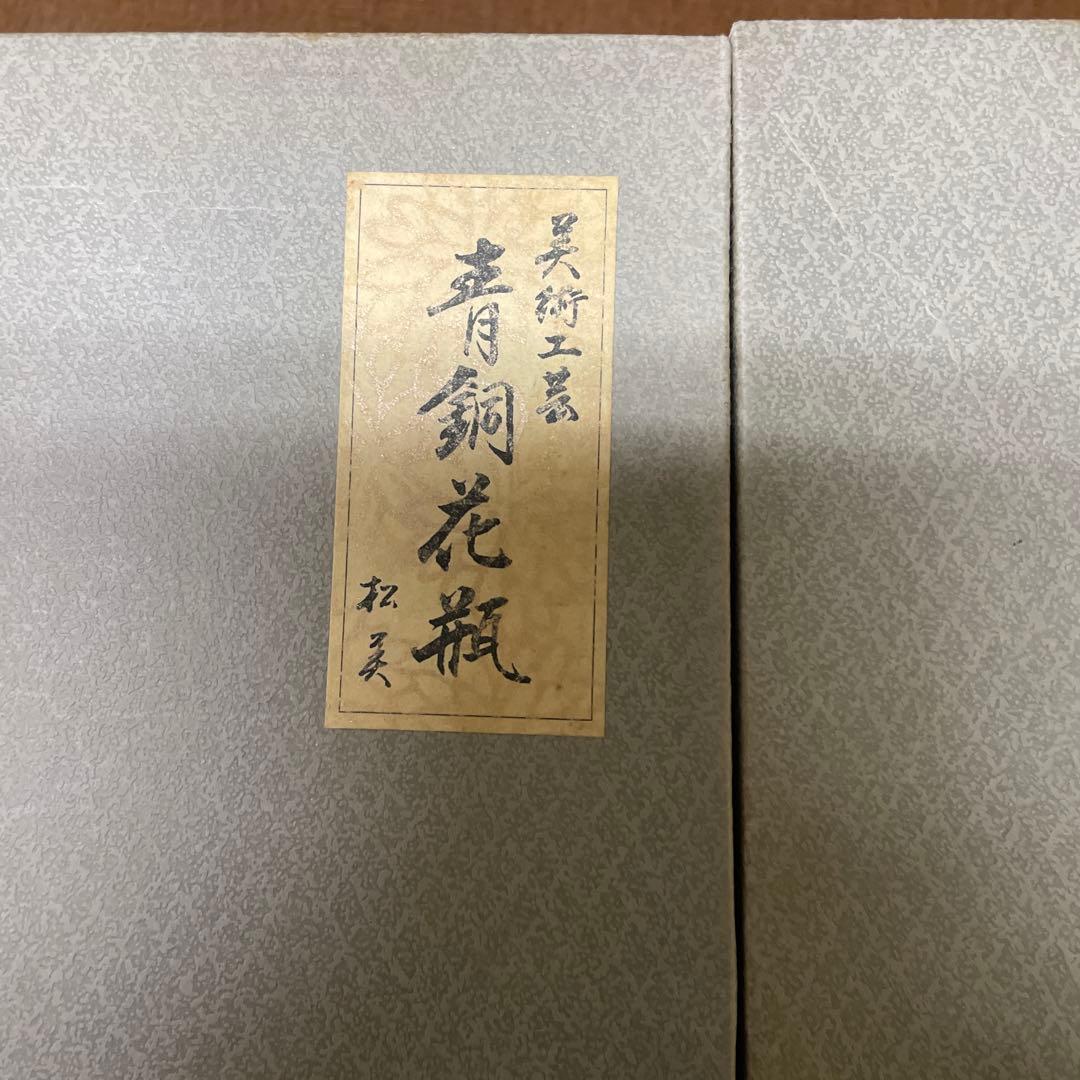 美術工芸
青銅花瓶
松美